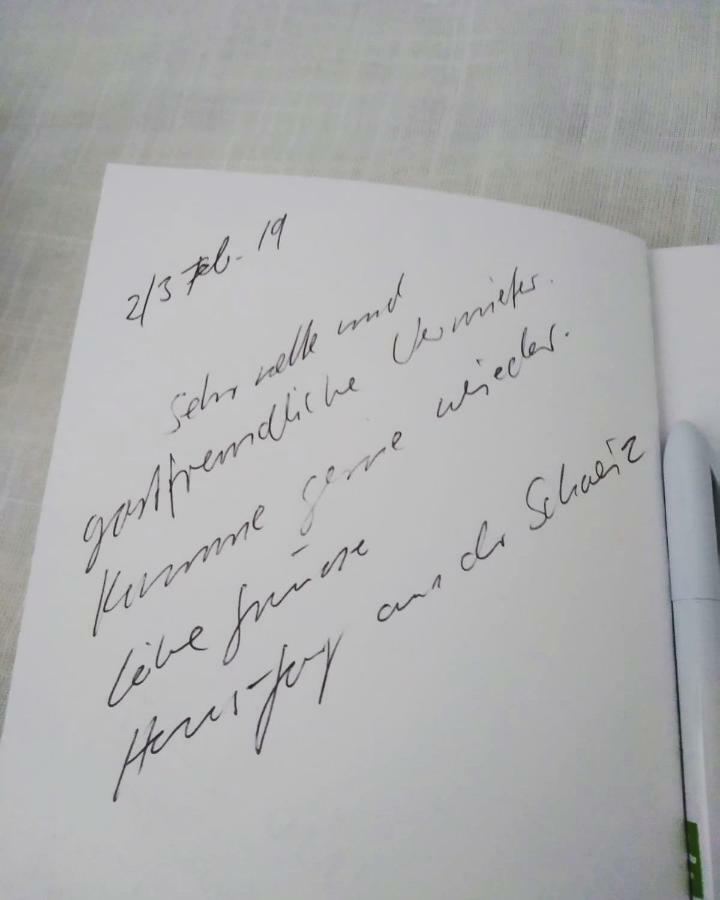 2/3 Feb. 19
Sehr nette und
gastfreundliche Vermieter.
Komme gerne wieder.
Liebe Grüsse
Hans-Jürg aus der Schweiz